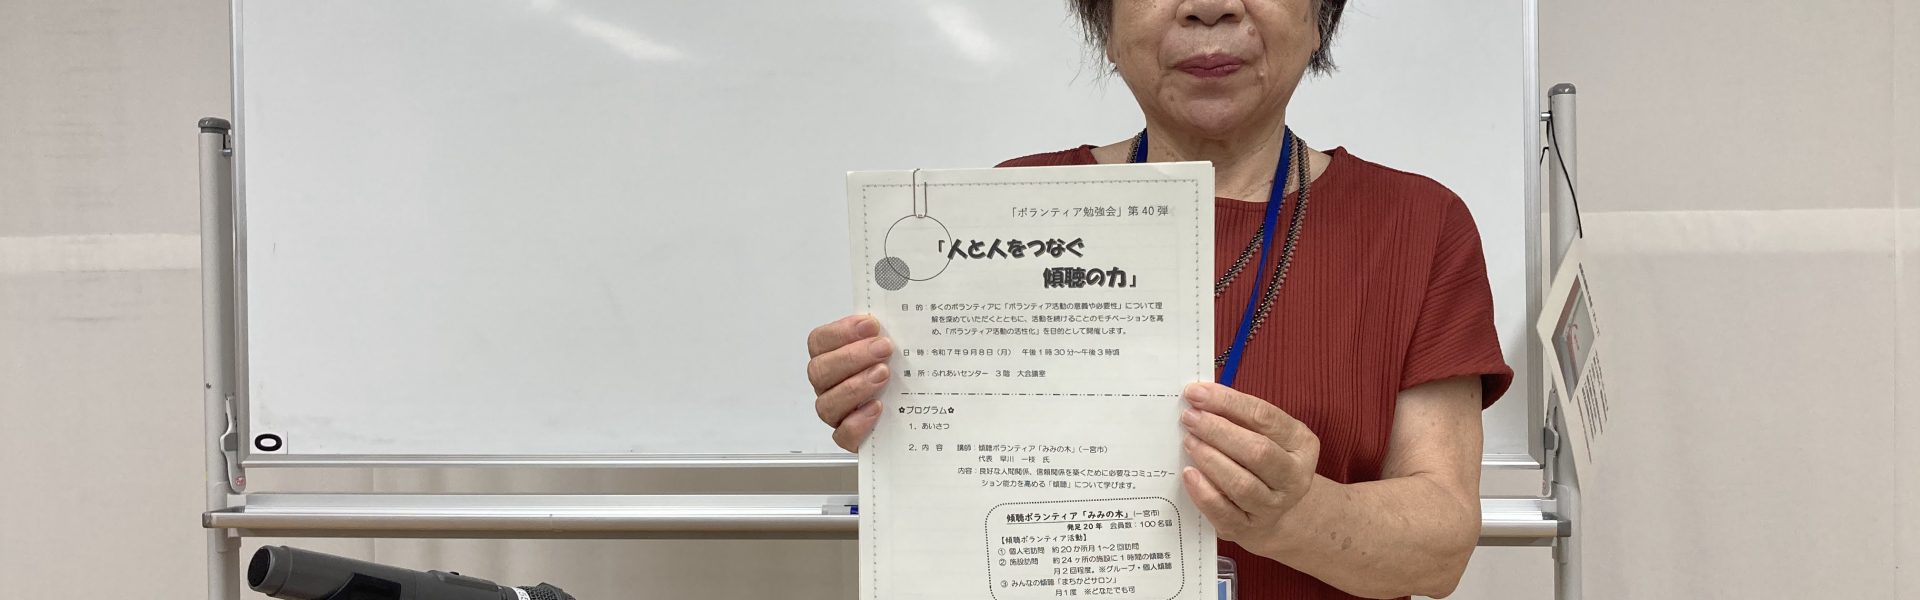 「ボランティア勉強会」第40弾
「人と人をつなぐ
傾聴の力」
目 的：多くのボランティアに「ボランティア活動の意義や必要性」について理
解を深めていただくとともに、活動を続けることのモチベーションを高
め、「ボランティア活動の活性化」を目的として開催します。
日 時：令和7年9月8日（月） 午後1時30分～午後3時頃
場 所：ふれあいセンター 3階 大会議室
✿プログラム✿
1．あいさつ
2．内 容 講師：傾聴ボランティア「みみの木」（一宮市）
代表 早川 一枝 氏
内容：良好な人間関係、信頼関係を築くために必要なコミュニケー
ション能力を高める「傾聴」について学びます。
傾聴ボランティア「みみの木」（一宮市）
発足20年 会員数：100名弱
【傾聴ボランティア活動】
① 個人宅訪問 約20か所月1～2回訪問
② 施設訪問 約24ヶ所の施設に1時間の傾聴を
月2回程度。※グループ・個人傾聴
③ みんなの傾聴「まちかどサロン」
月1度 ※どなたでも可